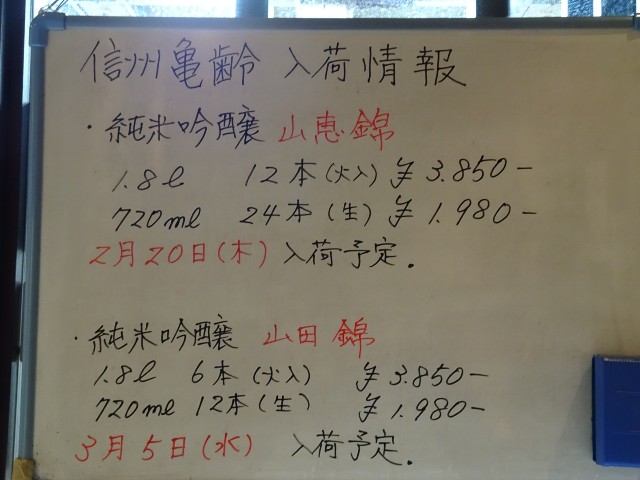 信州亀齢 入荷情報
・純米吟醸 山恵錦
1.8ℓ 12本(火入) ¥3.850-
720ml 24本(生) ¥1.980-
2月20日(木) 入荷予定.
・純米吟醸 山田錦
1.8ℓ 6本(火入) ¥3.850-
720ml 12本(生) ¥1.980-
3月5日(水) 入荷予定.